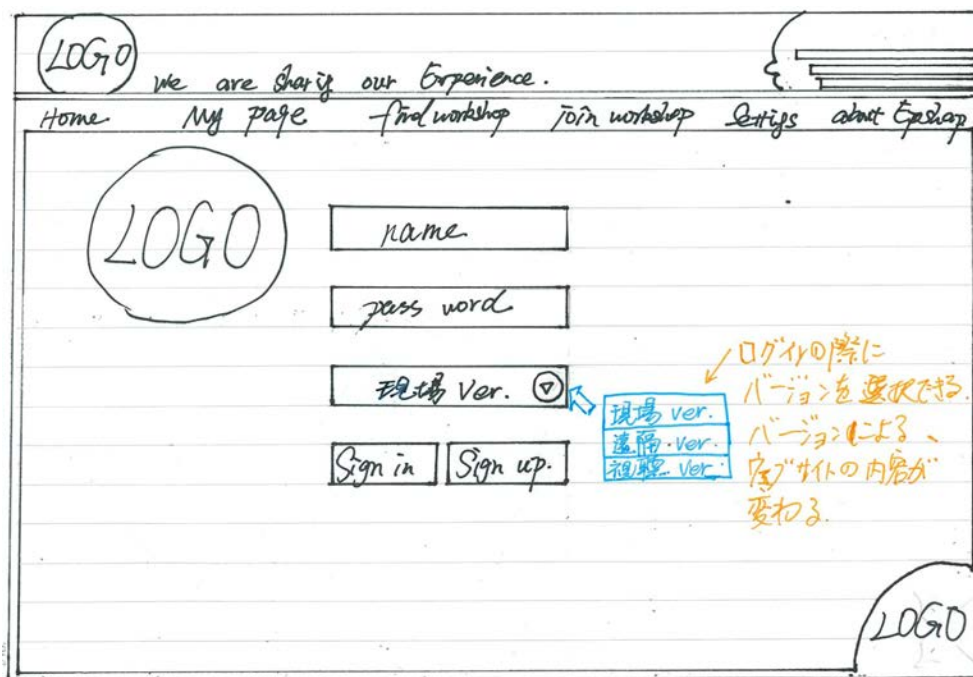 LOGO
We are sharig our Experience.
Home My page find workshop Join workshop Settigs about Epsharp
LOGO
name
pass word
現場 ver.
Sign in Sign up.
現場 ver.
遠隔 ver.
視聴 ver.
ログインの際に
バージョンを選択できる.
バージョンによる、
ウェブサイトの内容が
変わる.
LOGO